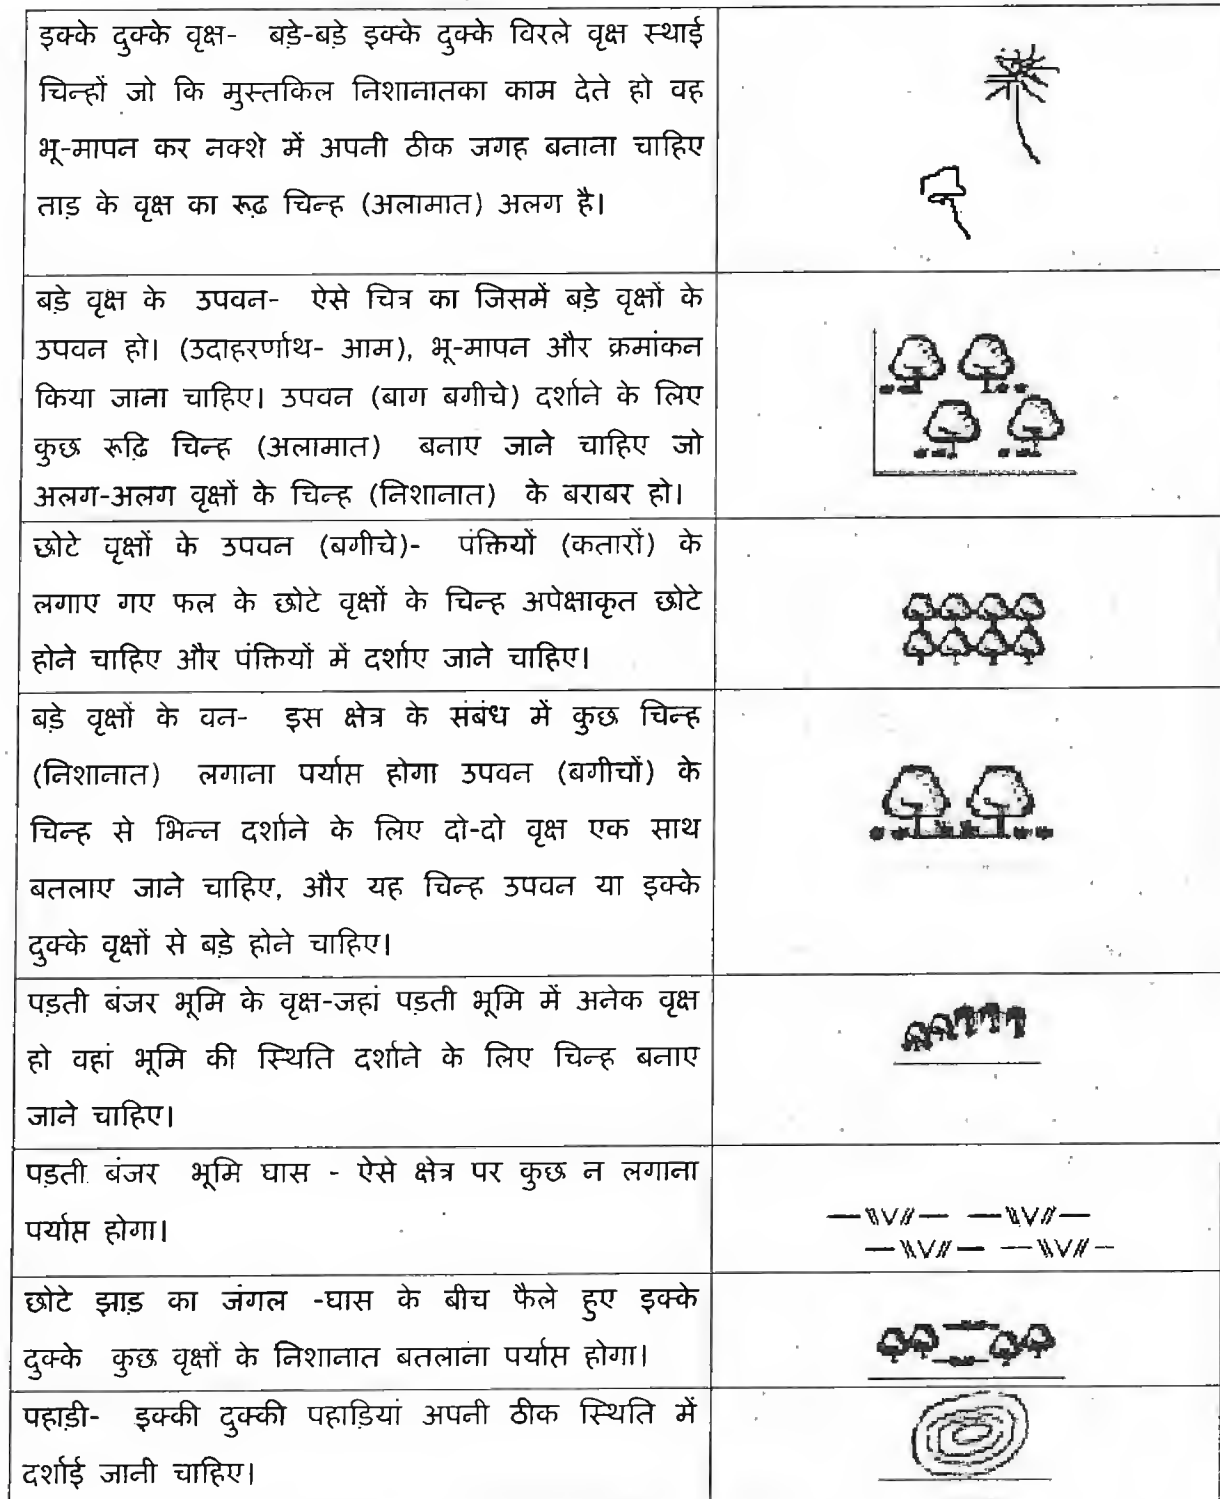 इक्के दुक्के वृक्ष- बड़े-बड़े इक्के दुक्के विरले वृक्ष स्थाई
चिन्हों जो कि मुस्तकिल निशानातका काम देते हो वह
भू-मापन कर नक्शे में अपनी ठीक जगह बनाना चाहिए
ताड़ के वृक्ष का रूढ़ चिन्ह (अलामात) अलग है।
बडे वृक्ष के उपवन- ऐसे चित्र का जिसमें बड़े वृक्षों के
उपवन हो। (उदाहरर्णाथ- आम), भू-मापन और क्रमांकन
किया जाना चाहिए। उपवन (बाग बगीचे) दर्शाने के लिए
कुछ रूढ़ि चिन्ह (अलामात) बनाए जाने चाहिए जो
अलग-अलग वृक्षों के चिन्ह (निशानात) के बराबर हो।
छोटे वृक्षों के उपवन (बगीचे)- पंक्तियों (कतारों) के
लगाए गए फल के छोटे वृक्षों के चिन्ह अपेक्षाकृत छोटे
होने चाहिए और पंक्तियों में दर्शाए जाने चाहिए।
बड़े वृक्षों के वन- इस क्षेत्र के संबंध में कुछ चिन्ह
(निशानात) लगाना पर्याप्त होगा उपवन (बगीचों) के
चिन्ह से भिन्न दर्शाने के लिए दो-दो वृक्ष एक साथ
बतलाए जाने चाहिए, और यह चिन्ह उपवन या इक्के
दुक्के वृक्षों से बड़े होने चाहिए।
पड़ती बंजर भूमि के वृक्ष-जहां पड़ती भूमि में अनेक वृक्ष
हो वहां भूमि की स्थिति दर्शाने के लिए चिन्ह बनाए
जाने चाहिए।
पड़ती बंजर भूमि घास - ऐसे क्षेत्र पर कुछ न लगाना
पर्याप्त होगा।
छोटे झाड़ का जंगल -घास के बीच फैले हुए इक्के
दुक्के कुछ वृक्षों के निशानात बतलाना पर्याप्त होगा।
पहाड़ी- इक्की दुक्की पहाड़ियां अपनी ठीक स्थिति में
दर्शाई जानी चाहिए।